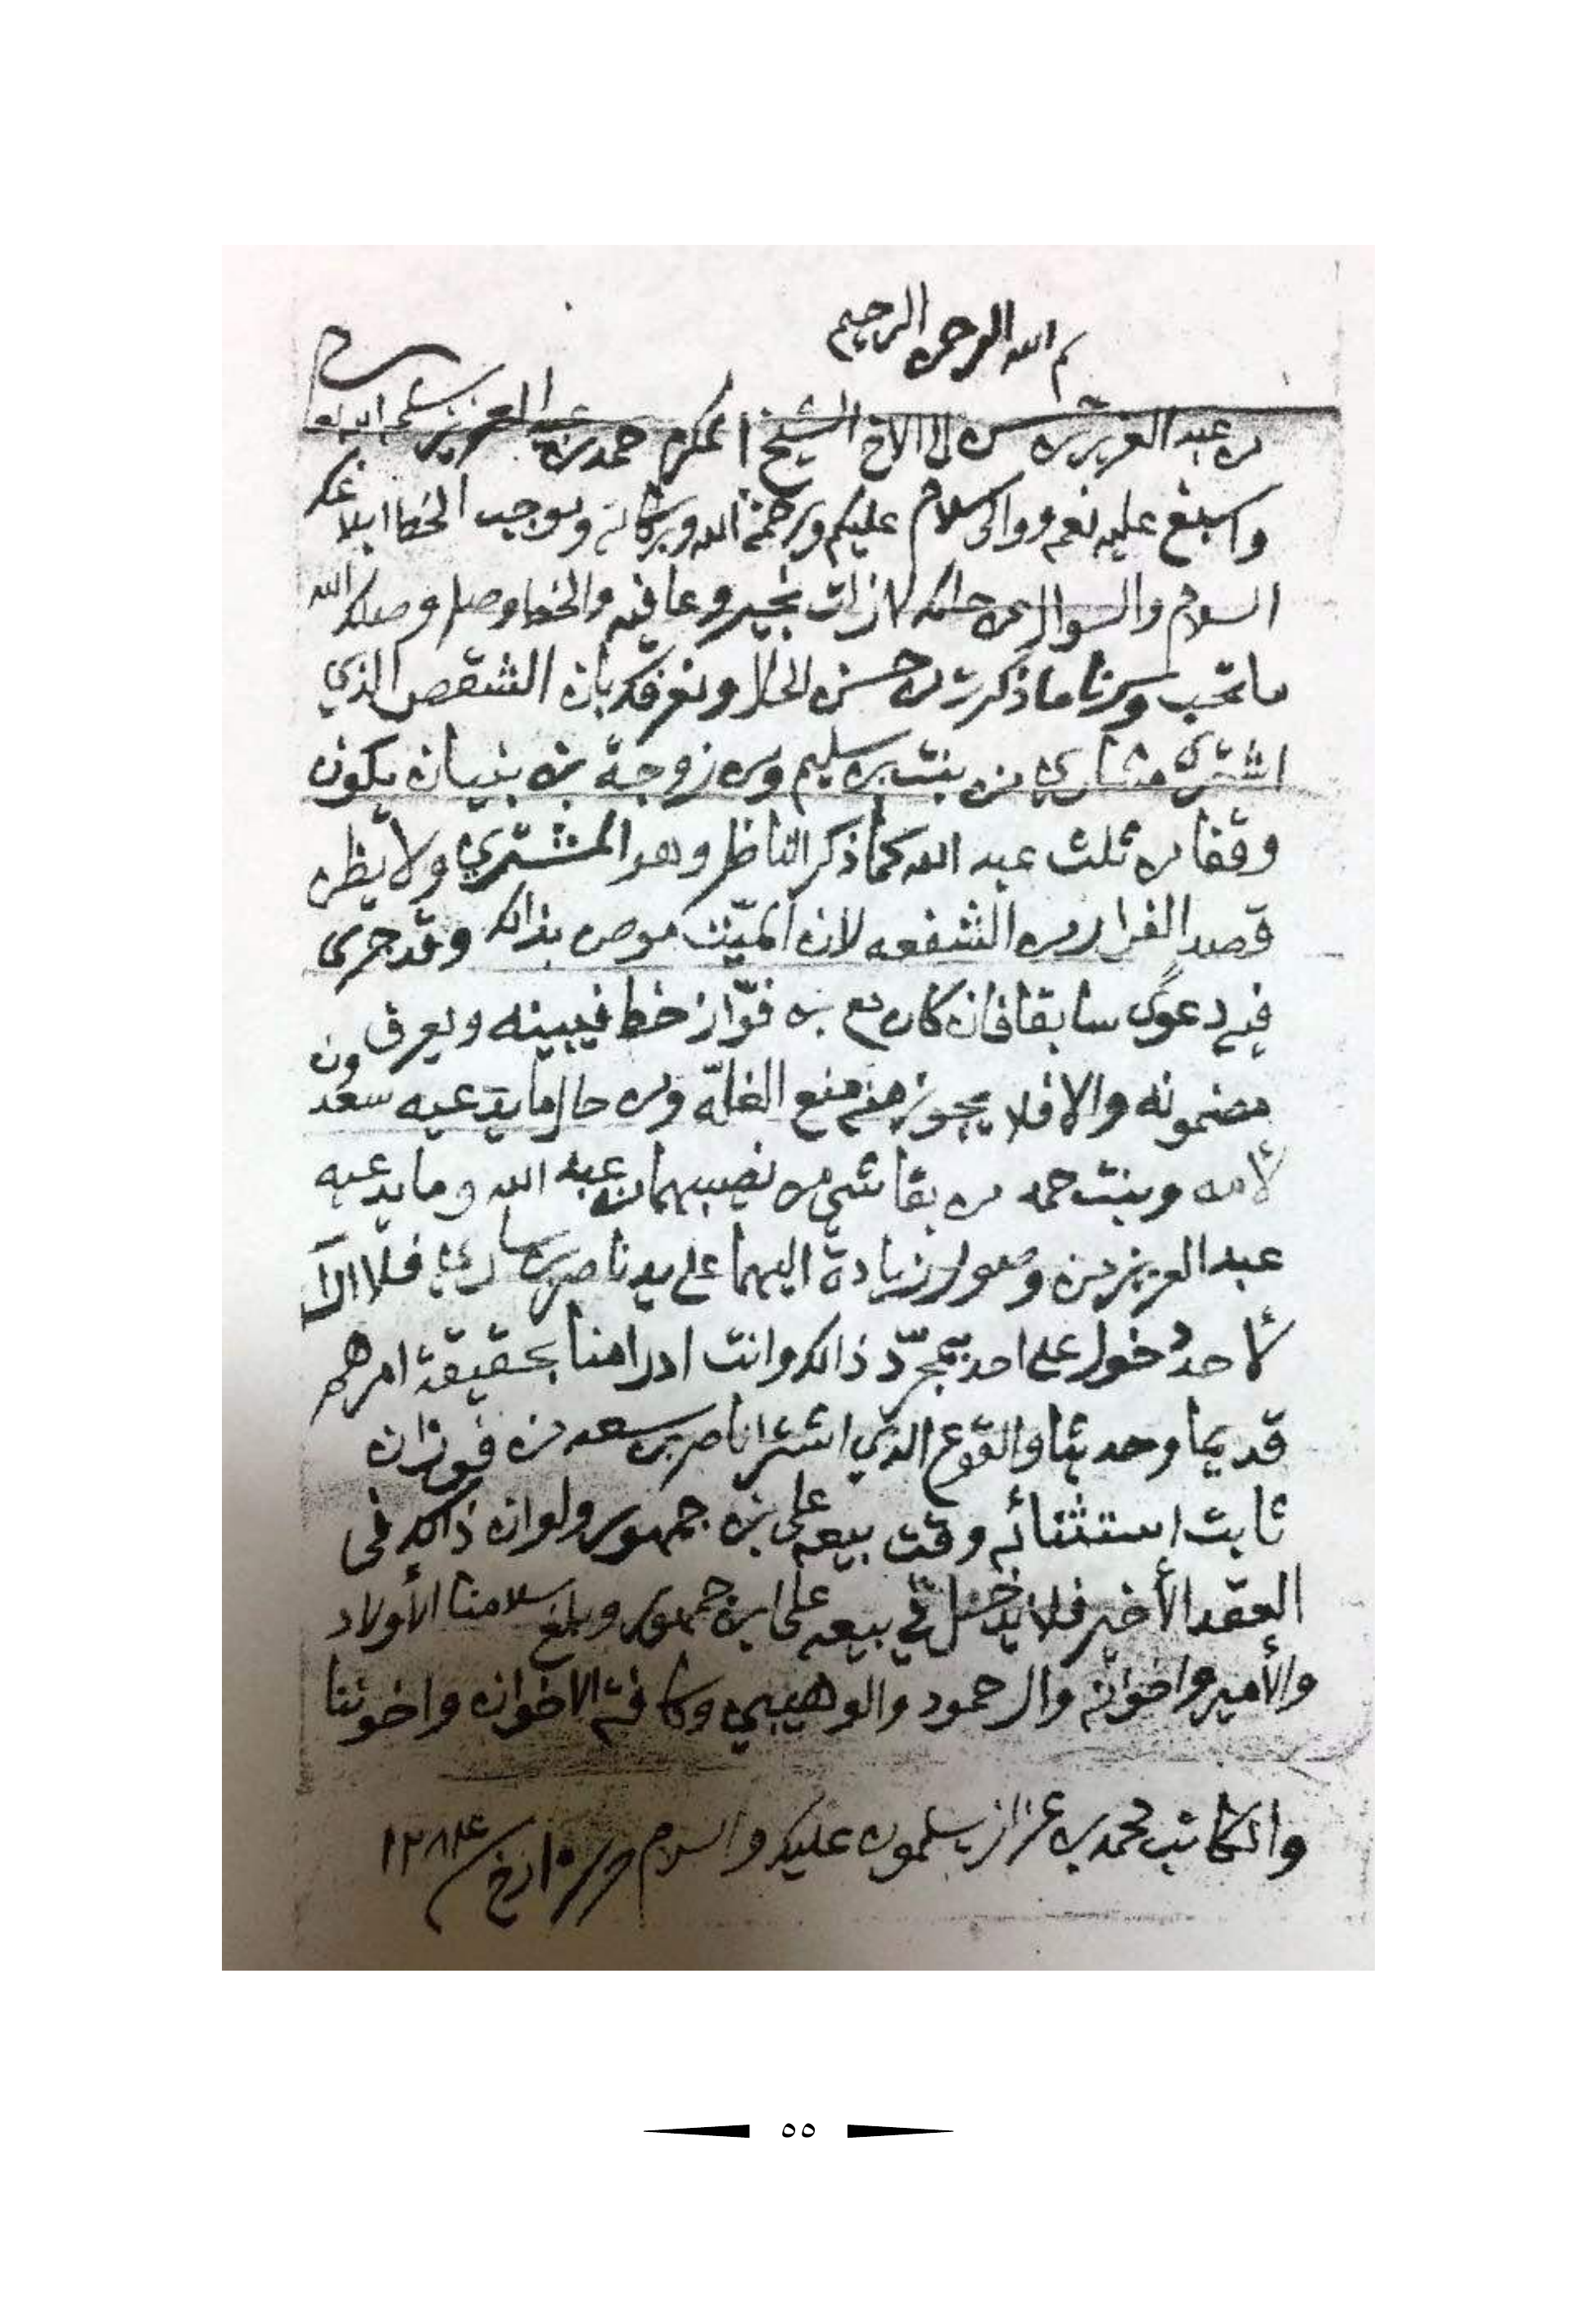 بسم الله الرحمن الرحيم
من عبد العزيز بن حسن الى الاخ الشيخ المكرم حمد بن عبد العزيز سلمه الله تعالى
واسبغ عليه نعمه ووالى سلام عليكم ورحمة الله وبركاته وموجب الخط ابلاغك
السلام والسوال عن حالك لا زلت بخير وعافيه والخط وصل وصلك الله
ما تحب وسرنا ما ذكرت من حسن الحال ونعرفك بان الشقص الذي
اشترى مشاري من بنت بن سليم ومن زوجة بن بنيان يكون
وقفا من ثلث عبد الله كما ذكر الناظر وهو المشتري ولا يظن
قصد الفرار من الشفعه لان الميّت موص بذالك وقد جرى
فيه دعوى سابقا فان كان مع بن فوّاز خط فيبينه ويعرفون
مضمونه والا فلا يجوز منه منع الغلّة ومن حال ما يدّعيه سعد
لأمه وبنت حمد من بقا شي من نصيبهما من عبد الله وما يدعيه
عبد العزيز من وصول زيادة اليهما على يد ناصر بن ساري فلا الا
لأحد دخول على احد بمجرّد ذالك وانت ادرا منا بحقيقة امرهم
قديما وحديثا والقوع الذي اشترا ناصر بن سعد من فوزان
ثابت استثنائه وقت بيعه على بن جمهور ولو ان ذالك في
العقد الأخير فلا يدخل في بيعه على ابن جمهور وبلغ سلامنا الأولاد
والأمير واخوانه وال حمود والوهيبي وكافة الاخوان واخوتنا
والكاتب محمد بن عزاز يسلمون عليك والسلام وتاريخ ١٢٨٤
٥٥